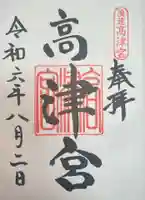 浪速高津宮
奉拝
高津宮
令和六年八月二日